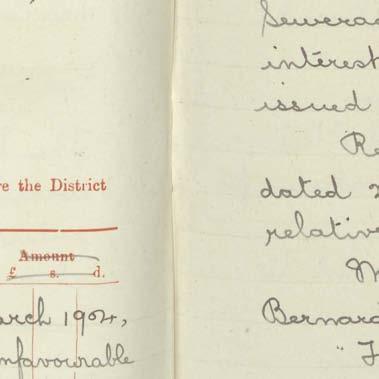 re the District
Amount
£ s. d.
arch 1904,
nfavourable
Sewera
interest
issued
Re
dated 2
relative
M
Bernard
"